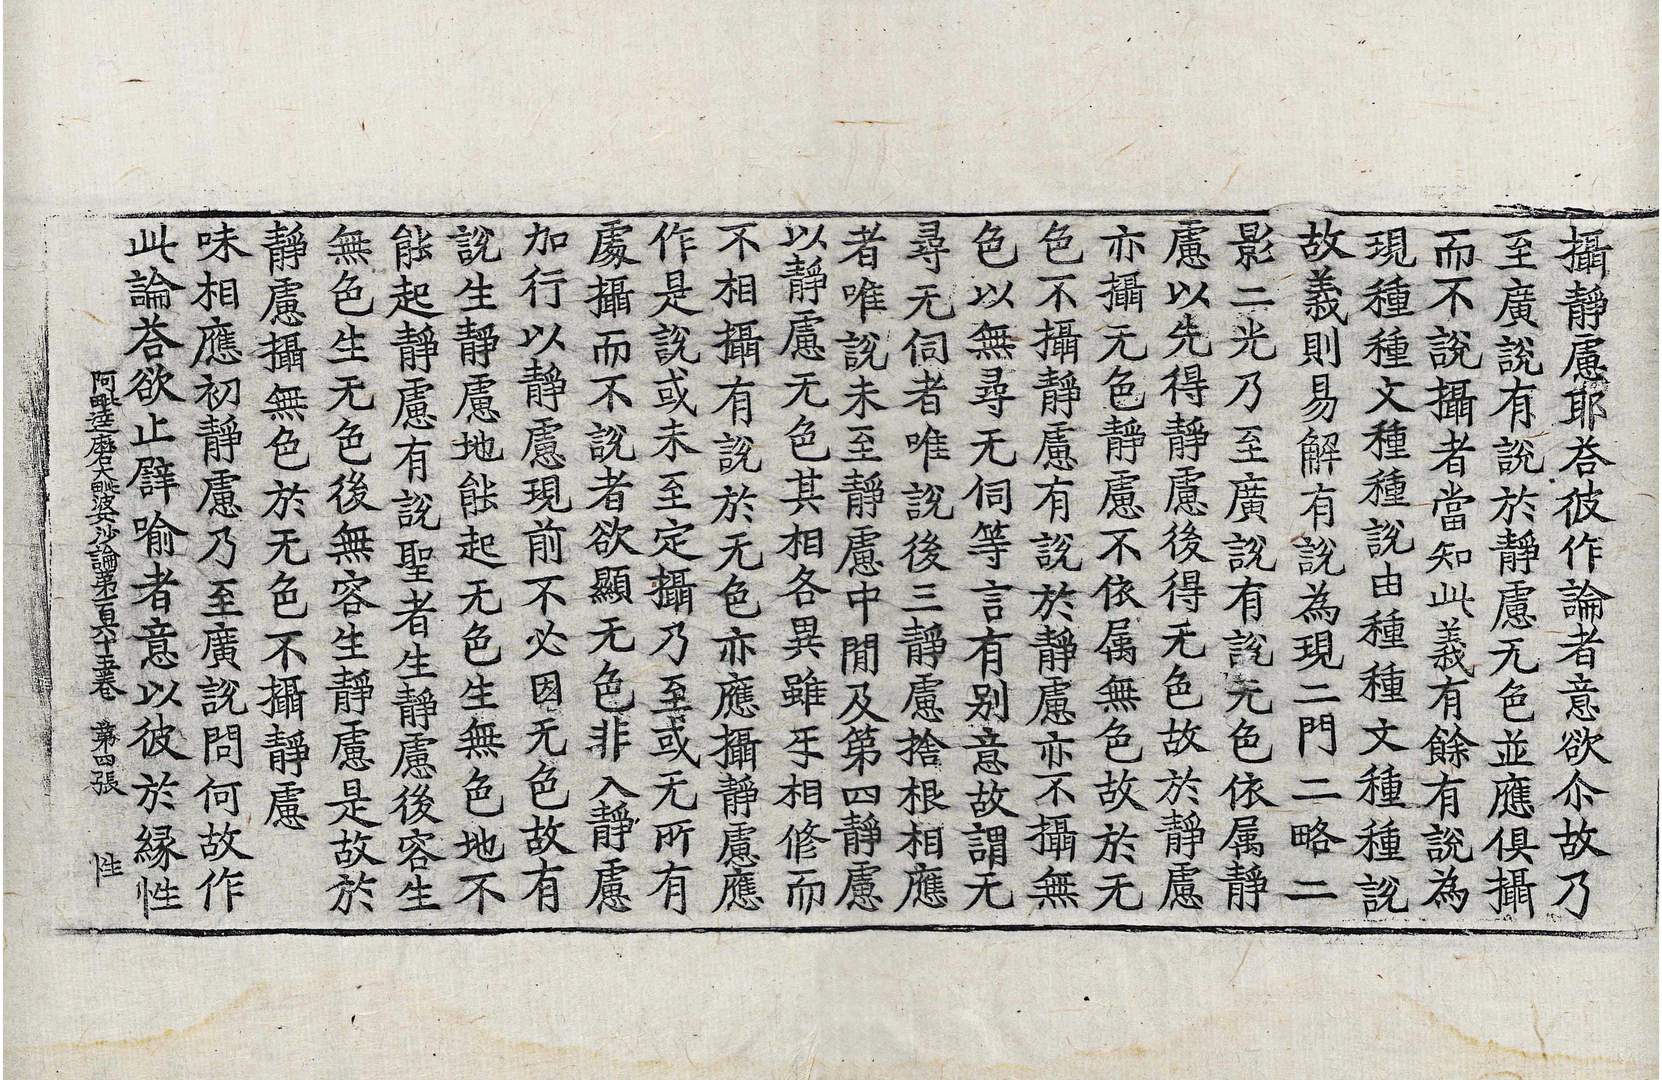 攝靜慮耶荅彼作論者意欲尒故乃
至廣說有說於靜慮无色並應俱攝
而不說攝者當知此義有餘有說為
現種種文種種說由種種文種種說
故義則易解有說為現二門二略二
影二光乃至廣說有說无色依属靜
慮以先得靜慮後得无色故於靜慮
亦攝无色靜慮不依属無色故於无
色不攝靜慮有說於靜慮亦不攝無
色以無尋无伺等言有別意故謂无
尋无伺者唯說後三靜慮捨根相應
者唯說未至靜慮中閒及第四靜慮
以靜慮无色其相各異雖㸦相修而
不相攝有說於无色亦應攝靜慮應
作是說或未至定攝乃至或无所有
處攝而不說者欲顯无色非入靜慮
加行以靜慮現前不必因无色故有
說生靜慮地能起无色生無色地不
能起靜慮有說聖者生靜慮後容生
無色生无色後無容生靜慮是故於
靜慮攝無色於无色不攝靜慮
味相應初靜慮乃至廣說問何故作
此論荅欲止譬喻者意以彼於緣性
阿毗達磨大毗婆沙論第一百六十五卷　第四張　性